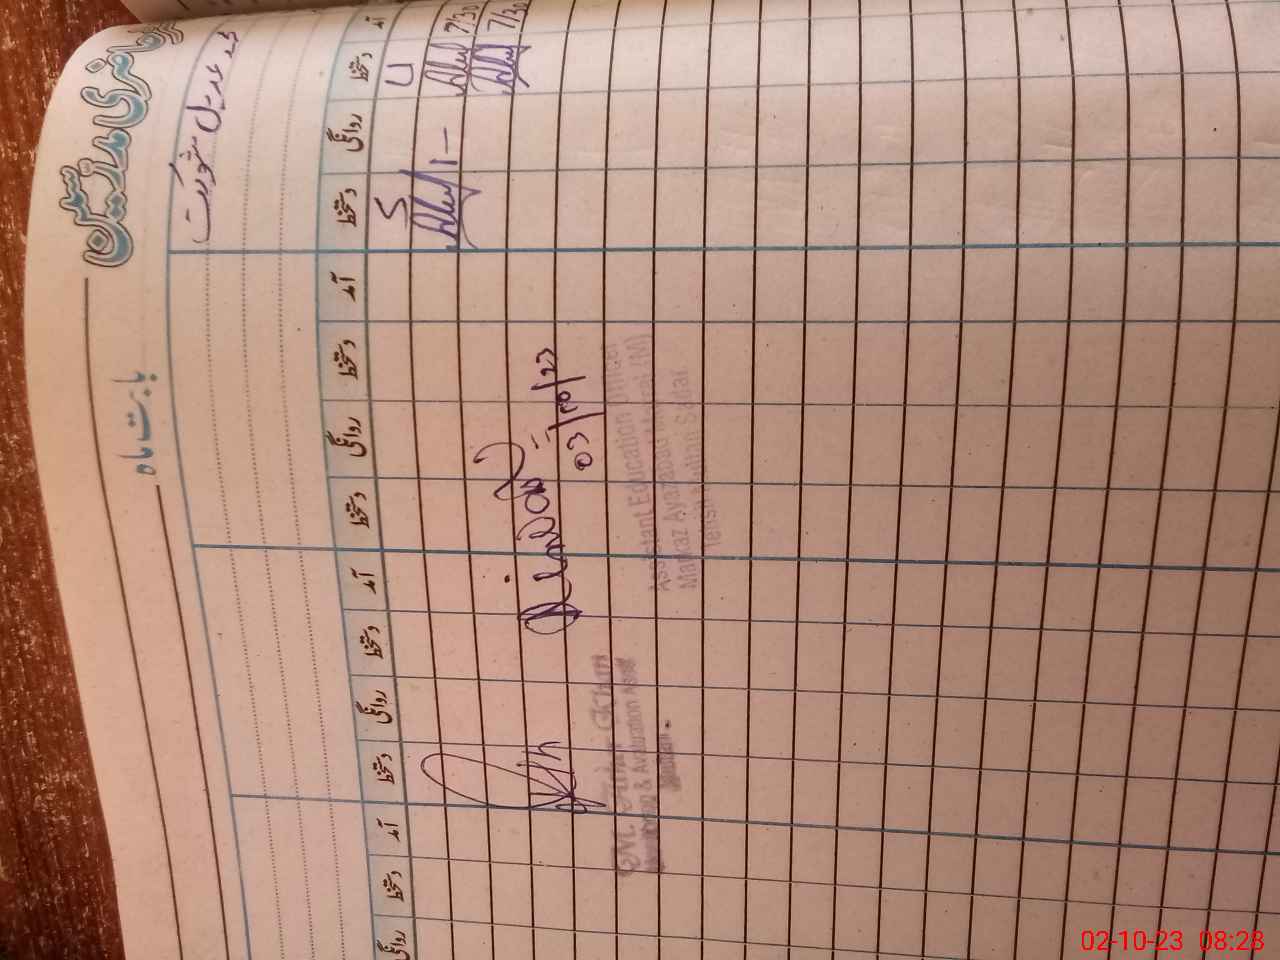 حاضری مدرسین
بابت ماہ
محمد عدیل شوکت
آمد دستخط روانگی دستخط آمد دستخط روانگی دستخط آمد دستخط روانگی دستخط آمد دستخط روانگی
S U
7/30
1-
7/30
03/10/23
Assistant Education Officer
Markaz Ayazabad Maral (M)
Tehsil Multan Sadar
M. Khan
Monitoring & Evaluation Asstt
Multan.
02-10-23 08:28